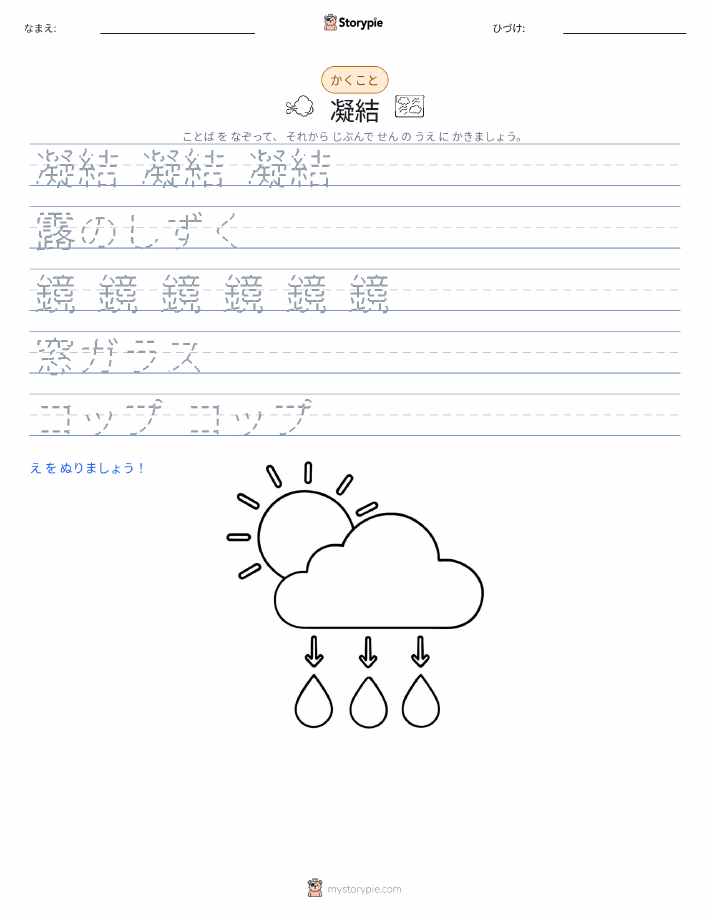 なまえ:
Storypie
ひづけ:
かくこと
凝結
ことば を なぞって、 それから じぶんで せん の うえ に かきましょう。
凝結 凝結 凝結
露のしずく
鏡 鏡 鏡 鏡 鏡 鏡
窓ガラス
コップ コップ
え を ぬりましょう！
mystorypie.com